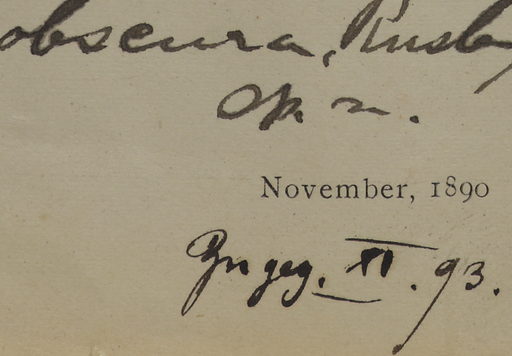 obscura, Rusby
sp. n.
November, 1890
Yngey. XI. 93.